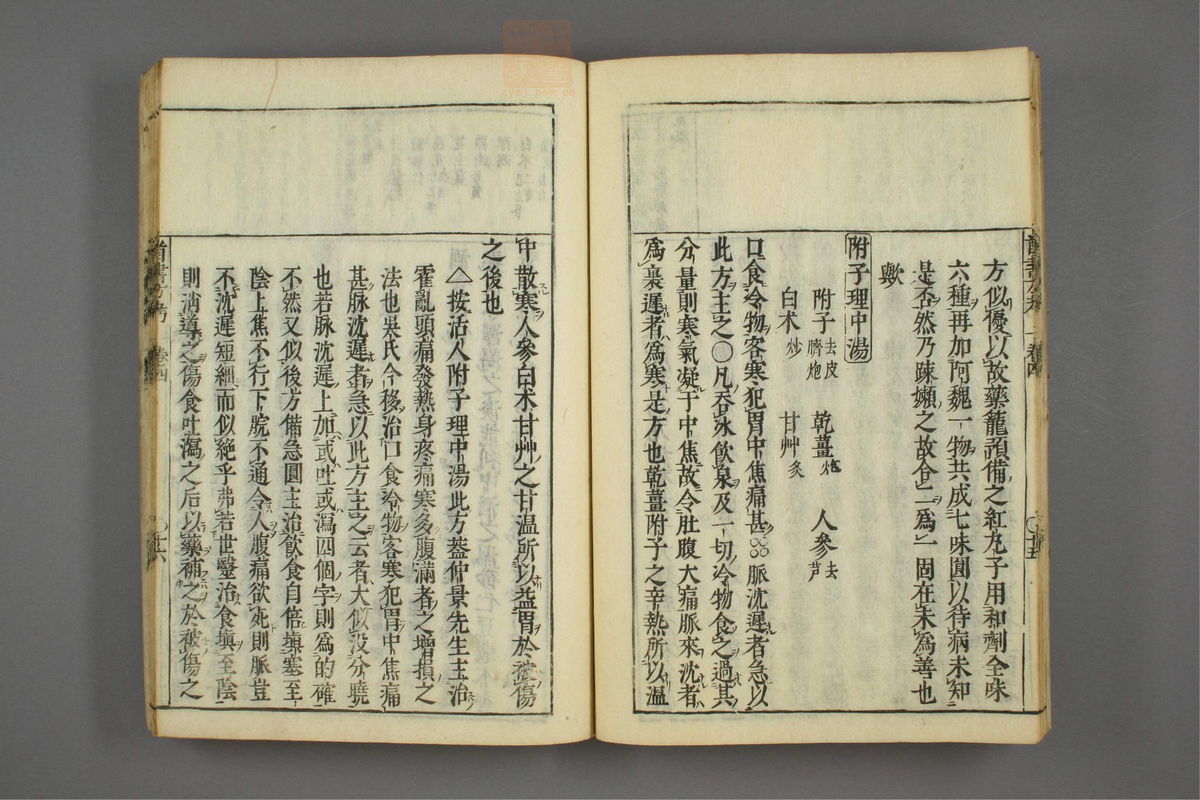 方似優以故藥籠預備之紅丸子用和劑全味
六種再加阿魏一物共成七味圓以待病未知
是否然乃踈嬾之故合二爲一固在未爲善也
歟
附子理中湯
附子去皮臍炮 乾薑炮 人參去芦
白术炒 甘艸炙
口食冷物客寒犯胃中焦痛甚脈沈遲者急以
此方主之○凡吞氷飲泉及一切冷物食之過其
分量則寒氣凝于中焦故令肚腹大痛脈來沈者
爲裏遲者爲寒是方也乾薑附子之辛熱所以温
中散寒人參白术甘艸之甘温所以益胃於被傷
之後也
△按活人附子理中湯此方葢仲景先生主治
霍亂頭痛發熱身疼痛寒多腹滿者之增損之
法也吳氏今移治口食冷物客寒犯胃中焦痛
甚脉沈遲者急以此方主之云者大似没分曉
也若脉沈遲上加或吐或瀉四個字則爲的確
不然又似後方備急圓主治飲食自倍塡塞至
陰上焦不行下脘不通令人腹痛欲死則脈豈
不沈遲短細而似絶乎弗若世毉治食塡至陰
則消導之傷食吐瀉之后以藥補之於被傷之
卷四
十五
卷四
十六